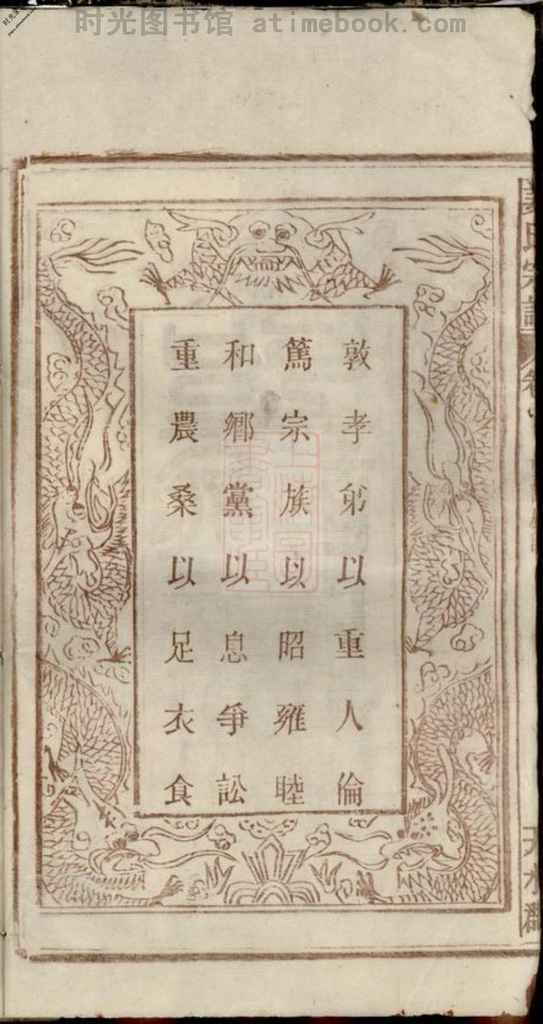 时光图书馆 - atimebook.com
敦孝弟以重人倫
篤宗族以昭雍睦
和鄉黨以息爭訟
重農桑以足衣食
姜氏宗譜
卷
天水郡